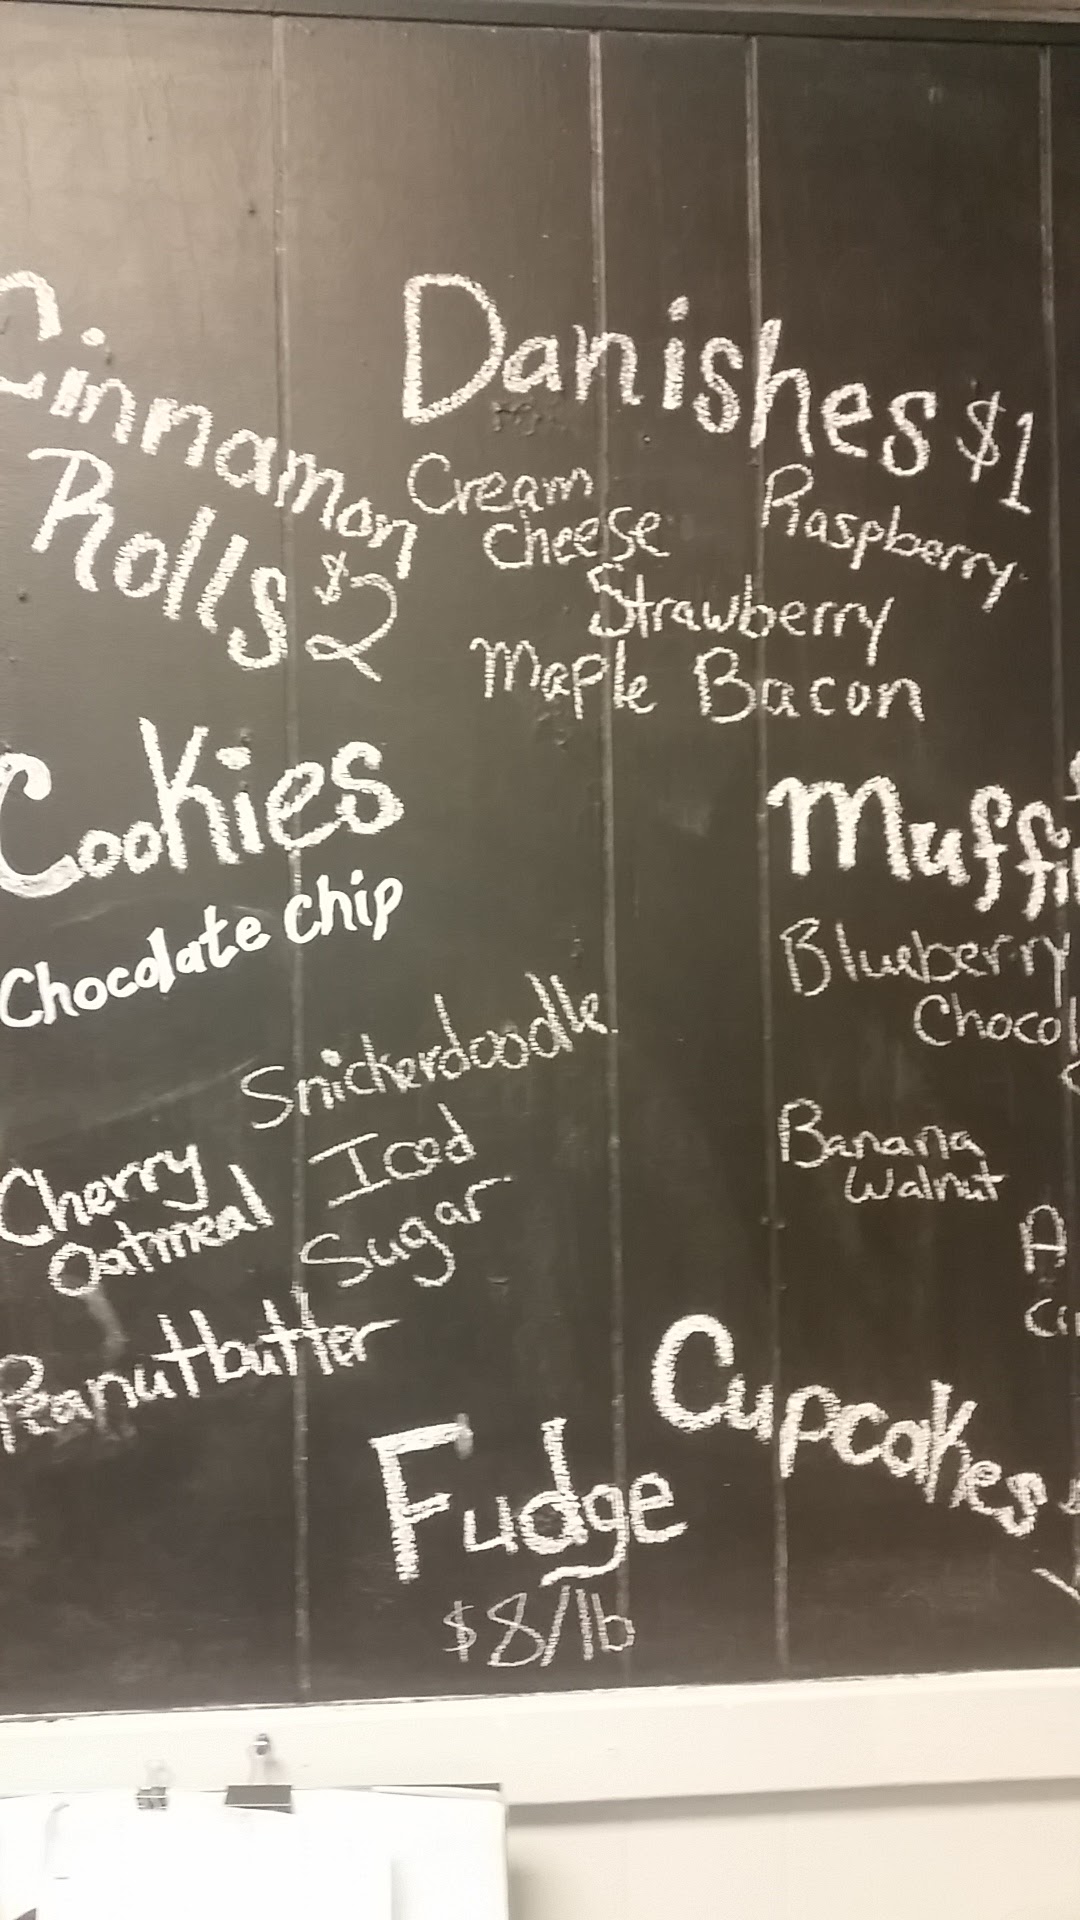 Cinnamon
Rolls $2
Danishes $1
Cream
cheese
Raspberry
Strawberry
Maple Bacon
Cookies
Chocolate chip
Snickerdoodle
Cherry
Oatmeal
Iced
Sugar
Peanutbutter
Blueberry
Banana
Walnut
Cupcakes
Fudge
$8/lb